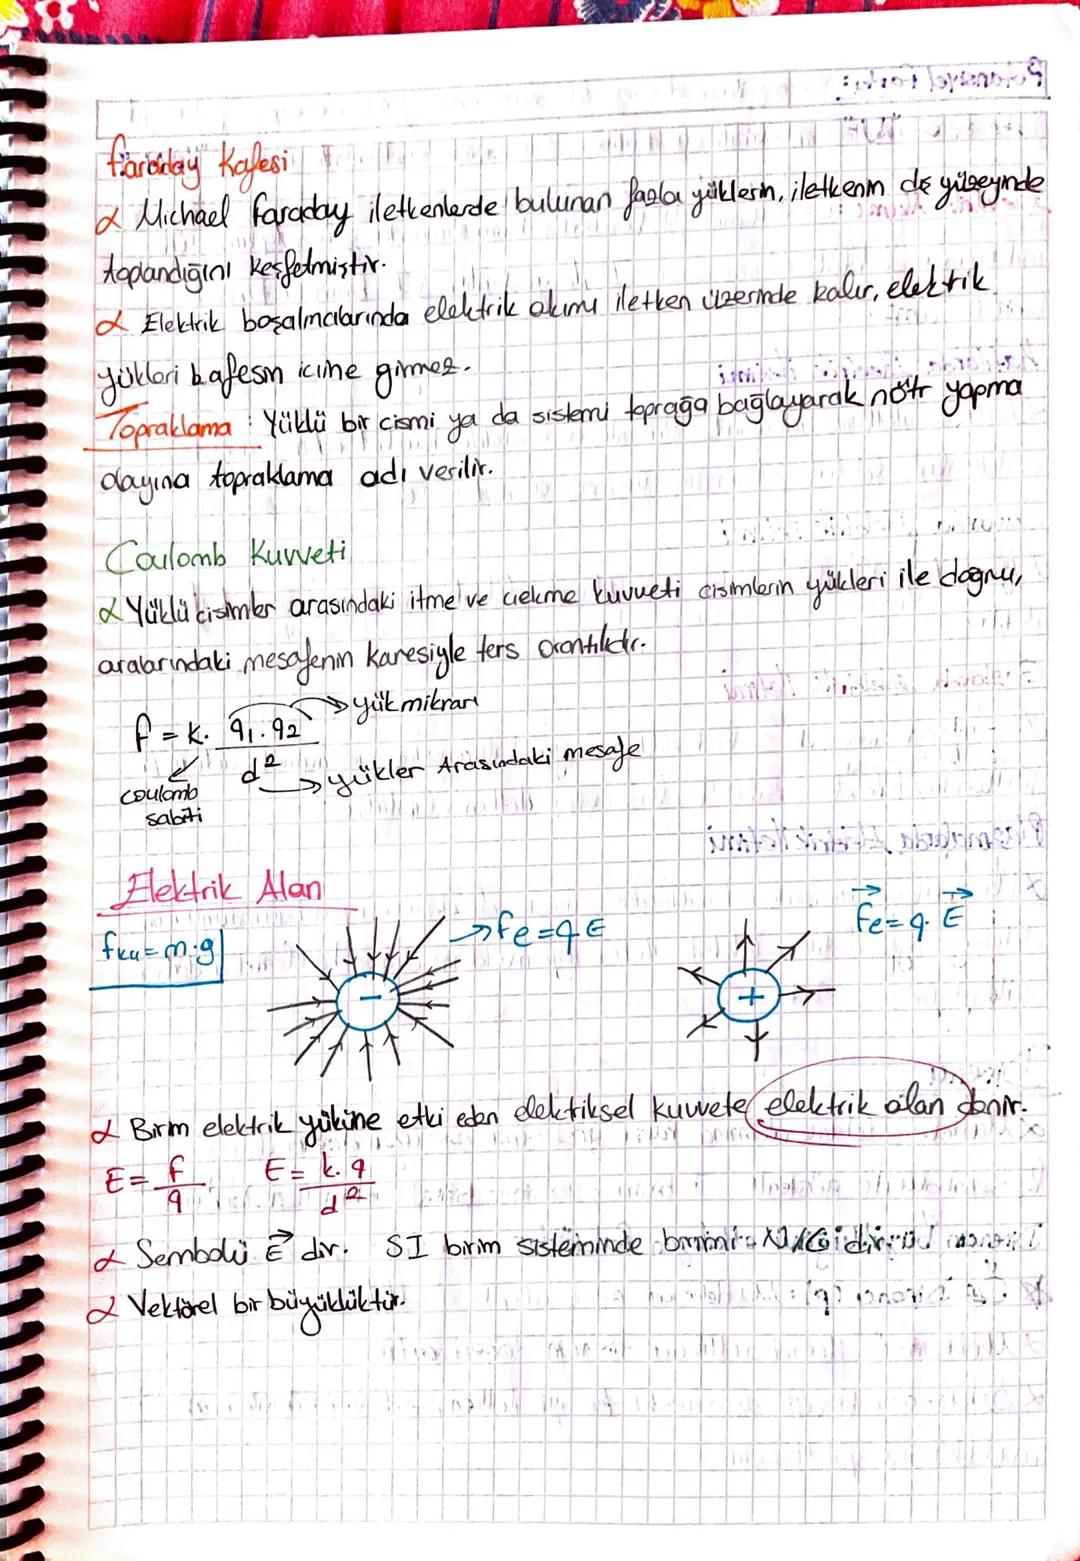 Faraday Kafesi
α Michael Faraday iletkenlerde bulunan fazla yüklerin, iletkenin dış yüzeyinde
toplandığını keşfetmiştir.
α Elektrik boşalmalarında elektrik akımı iletken üzerinde kalır, elektrik
yükleri kafesin içine girmez.
Topraklama : Yüklü bir cismi ya da sistemi toprağa bağlayarak nötr yapma
olayına topraklama adı verilir.
Coulomb Kuvveti
α Yüklü cisimler arasındaki itme ve çekme kuvveti cisimlerin yükleri ile doğru,
aralarındaki mesafenin karesiyle ters orantılıdır.
F = k. q₁.q₂ / d² → yük mikrarı
→ yükler Arasındaki mesafe
coulomb
sabiti
Elektrik Alan
fku = m.g
→ Fe = q E
Fe = q. E
− +
α Birim elektrik yüküne etki eden elektiksel kuvvete elektrik alan denir.
E = F / q E = k.q / d²
α Sembolü E dir. SI birim sisteminde birimi N/C dir.
α Vektörel bir büyüklüktür.